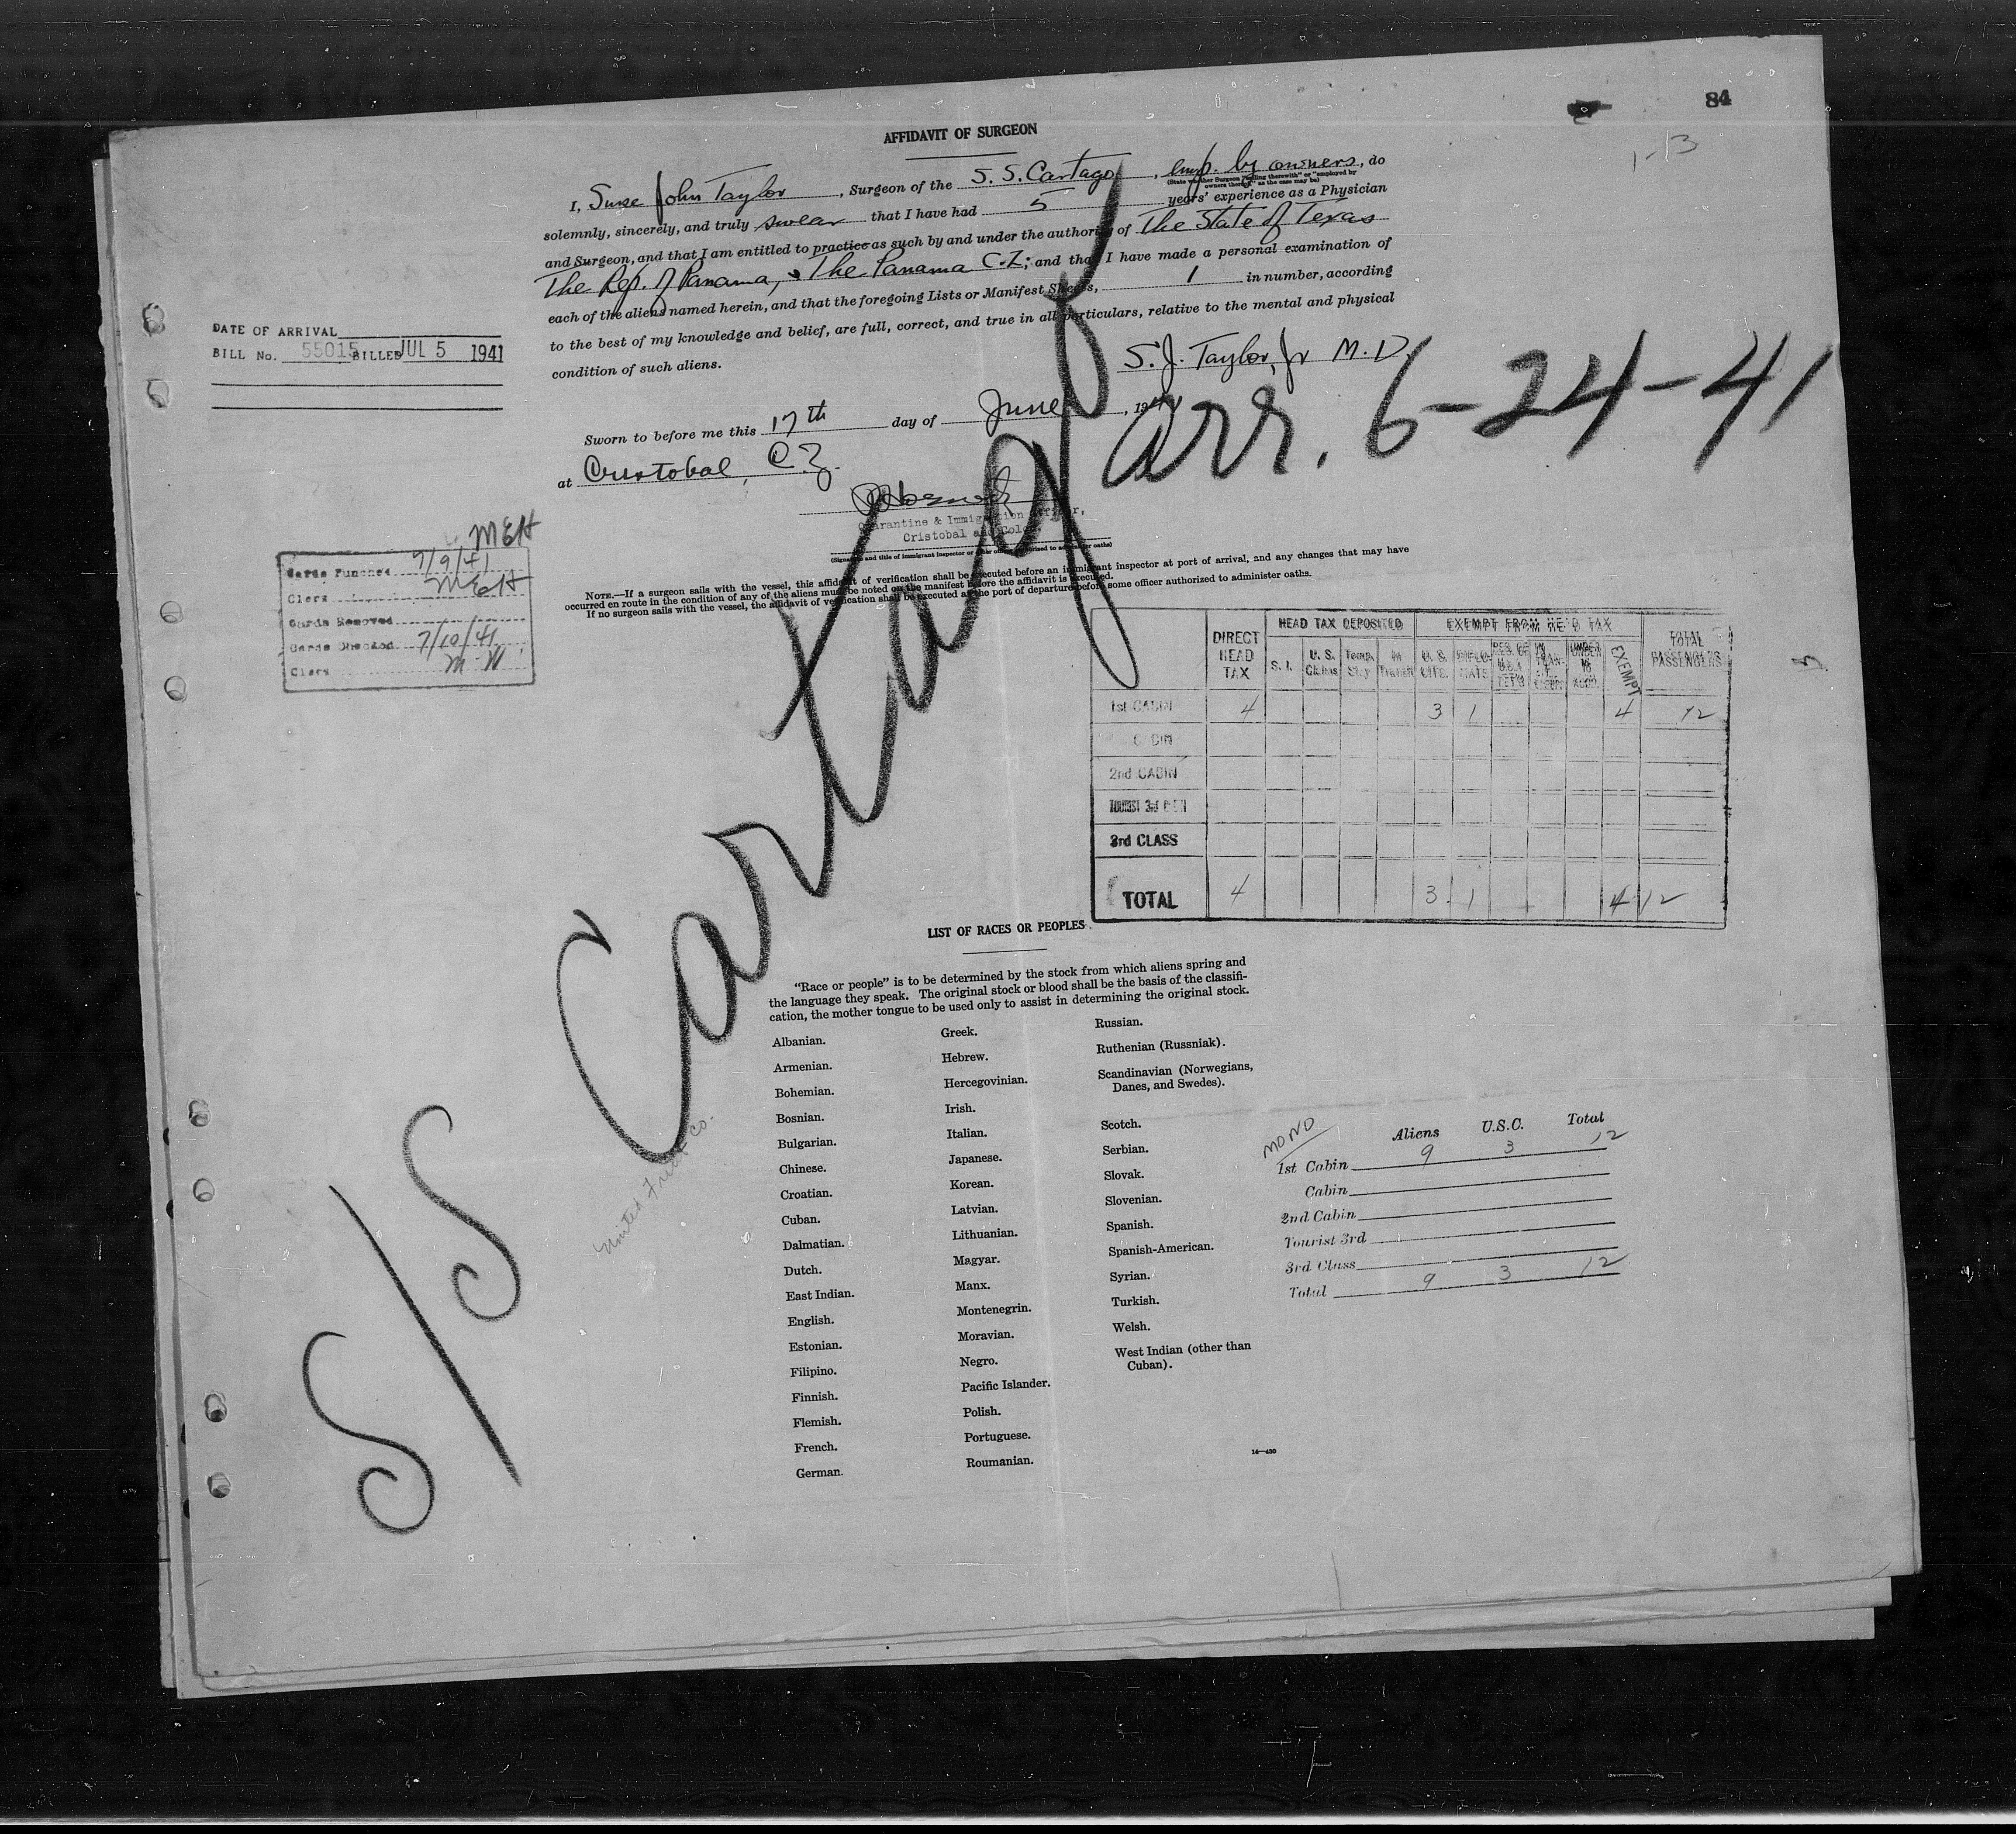 84
1-13
AFFIDAVIT OF SURGEON
I, Suse John Taylor, Surgeon of the S. S. Cartago, emp. by owners, do
(State whether Surgeon "sailing therewith" or "employed by
owners thereof," as the case may be)
solemnly, sincerely, and truly swear that I have had 5 years' experience as a Physician
and Surgeon, and that I am entitled to practice as such by and under the authority of The State of Texas
The Rep. of Panama, & The Panama C.Z; and that I have made a personal examination of
each of the aliens named herein, and that the foregoing Lists or Manifest Sheets, 1 in number, according
to the best of my knowledge and belief, are full, correct, and true in all particulars, relative to the mental and physical
condition of such aliens.
S. J. Taylor, Jr M. D.
Sworn to before me this 17th day of June, 1941
at Cristobal, C.Z.
Quarantine & Immigration Officer,
Cristobal and Colon
(Signature and title of immigrant inspector or other officer authorized to administer oaths)
NOTE.—If a surgeon sails with the vessel, this affidavit of verification shall be executed before an immigrant inspector at port of arrival, and any changes that may have
occurred en route in the condition of any of the aliens must be noted on the manifest before the affidavit is executed.
If no surgeon sails with the vessel, the affidavit of verification shall be executed at the port of departure before some officer authorized to administer oaths.
DATE OF ARRIVAL
BILL No. 55015 BILLED JUL 5 1941
MEH
Cards Punched 7/9/41
Clerk MEH
Cards Removed
Cards Checked 7/10/41
Clerk M W
S/S Cartago
arr. 6-24-41
United Fruit Co.
DIRECT HEAD TAX
HEAD TAX DEPOSITED
EXEMPT FROM HEAD TAX
TOTAL PASSENGERS
S. I.
U. S. Claims
Temp. Stay
In Transit
U. S. CITS.
DIPLOMATS
EXEMPT
1st CABIN 4 3 1 4 12
CABIN
2nd CABIN
TOURIST 3rd
3rd CLASS
TOTAL 4 3 1 4 12
3
LIST OF RACES OR PEOPLES
"Race or people" is to be determined by the stock from which aliens spring and
the language they speak. The original stock or blood shall be the basis of the classifi-
cation, the mother tongue to be used only to assist in determining the original stock.
Albanian.
Armenian.
Bohemian.
Bosnian.
Bulgarian.
Chinese.
Croatian.
Cuban.
Dalmatian.
Dutch.
East Indian.
English.
Estonian.
Filipino.
Finnish.
Flemish.
French.
German.
Greek.
Hebrew.
Hercegovinian.
Irish.
Italian.
Japanese.
Korean.
Latvian.
Lithuanian.
Magyar.
Manx.
Montenegrin.
Moravian.
Negro.
Pacific Islander.
Polish.
Portuguese.
Roumanian.
Russian.
Ruthenian (Russniak).
Scandinavian (Norwegians,
Danes, and Swedes).
Scotch.
Serbian.
Slovak.
Slovenian.
Spanish.
Spanish-American.
Syrian.
Turkish.
Welsh.
West Indian (other than
Cuban).
MONO
Aliens U.S.C. Total
1st Cabin 9 3 12
Cabin
2nd Cabin
Tourist 3rd
3rd Class
Total 9 3 12
14—430